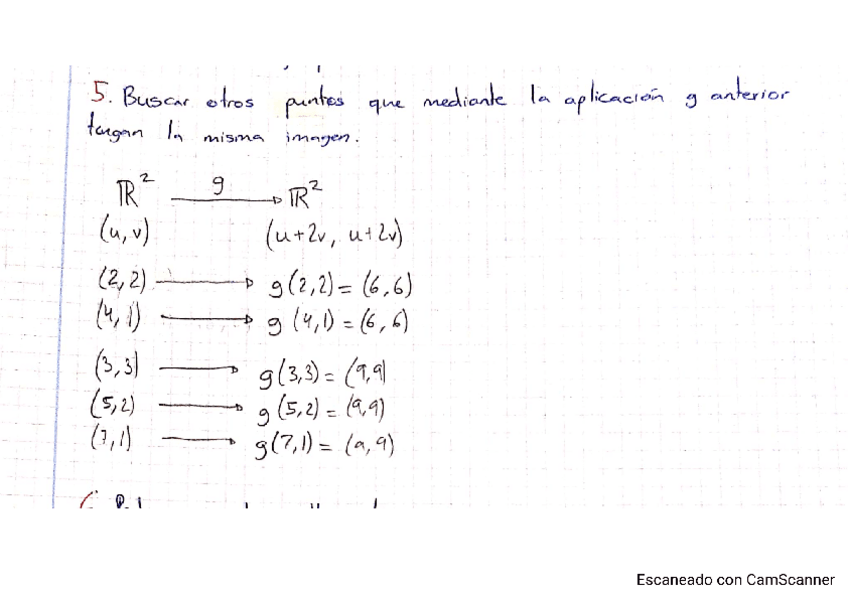 5. Buscar otros puntos que mediante la aplicación g anterior
tengan la misma imagen.
ℝ² g→ ℝ²
(u,v) (u+2v, u+2v)
(2,2) → g(2,2) = (6,6)
(4,1) → g(4,1) = (6,6)
(3,3) → g(3,3) = (9,9)
(5,2) → g(5,2) = (9,9)
(7,1) → g(7,1) = (9,9)
Escaneado con CamScanner